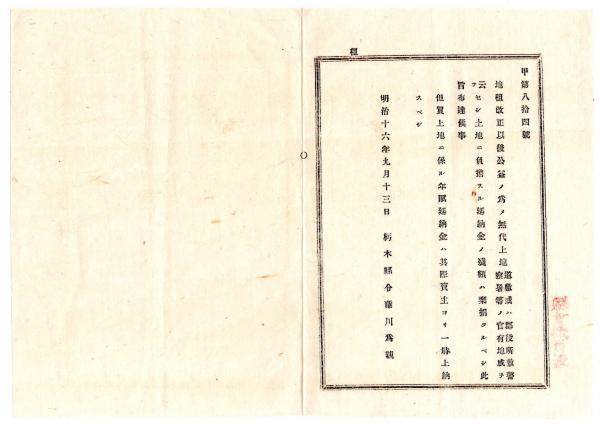 租
甲第八拾四號
地租改正以後公益ノ爲メ無代上地道敷或ハ郡役所敷警察署等ノ官有地成ヲ
云フセシ土地ニ負擔スル延納金ノ殘額ハ棄捐タルベシ此
旨布達候事
但買上地ニ係ル年賦延納金ハ其際賣主ヨリ一時上納
スベシ
明治十六年九月十三日 栃木縣令藤川爲親